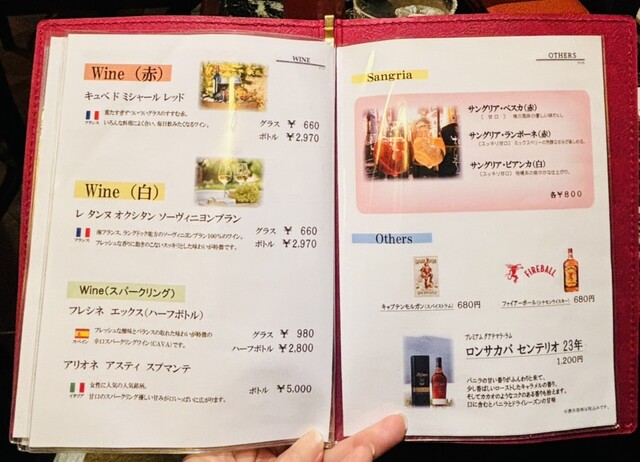 WINE
Wine (赤)
キュベ ド ミシャール レッド
フランス
重たすぎでついついグラスのすすむ赤。
いろんな料理によく合い、毎日飲みたくなるワイン。
グラス ¥ 660
ボトル ¥2,970
Wine (白)
レ タンヌ オクシタン ソーヴィニヨンブラン
フランス
南フランス、ラングドック地方のソーヴィニヨンブラン100%のワイン。
フレッシュな香りに飽きのこないスッキリとした味わいが特徴です。
グラス ¥ 660
ボトル ¥2,970
Wine(スパークリング)
フレシネ エックス(ハーフボトル)
スペイン
フレッシュな酸味とバランスの取れた味わいが特徴の
辛口スパークリングワイン(CAVA)です。
グラス ¥ 980
ハーフボトル ¥2,800
アリオネ アスティ スプマンテ
イタリア
女性に人気の人気銘柄。
甘口のスパークリング優しい甘みが口いっぱいに広がります。
ボトル ¥5,000
OTHERS
Sangria
サングリア・ペスカ(赤)
(甘口)
サングリア・ランポーネ(赤)
(スッキリ甘口)
サングリア・ビアンカ(白)
(スッキリ甘口) 柑橘系の爽やかな仕上がり。
各¥800
Others
FIREBALL
キャプテンモルガン(スパイストラム) 680円
ファイアーボール(シナモンウイスキー) 680円
プレミアム グアテマラ・ラム
ロンサカパ センテリオ 23年
1,200円
バニラの甘い香りがふんわりと来て、
少し香ばしいローストしたキャラメルの香り。
そしてカカオのようなコクのある香りも控えます。
口に含むとバニラとドライレーズンの甘味
※表示価格は税込みです。